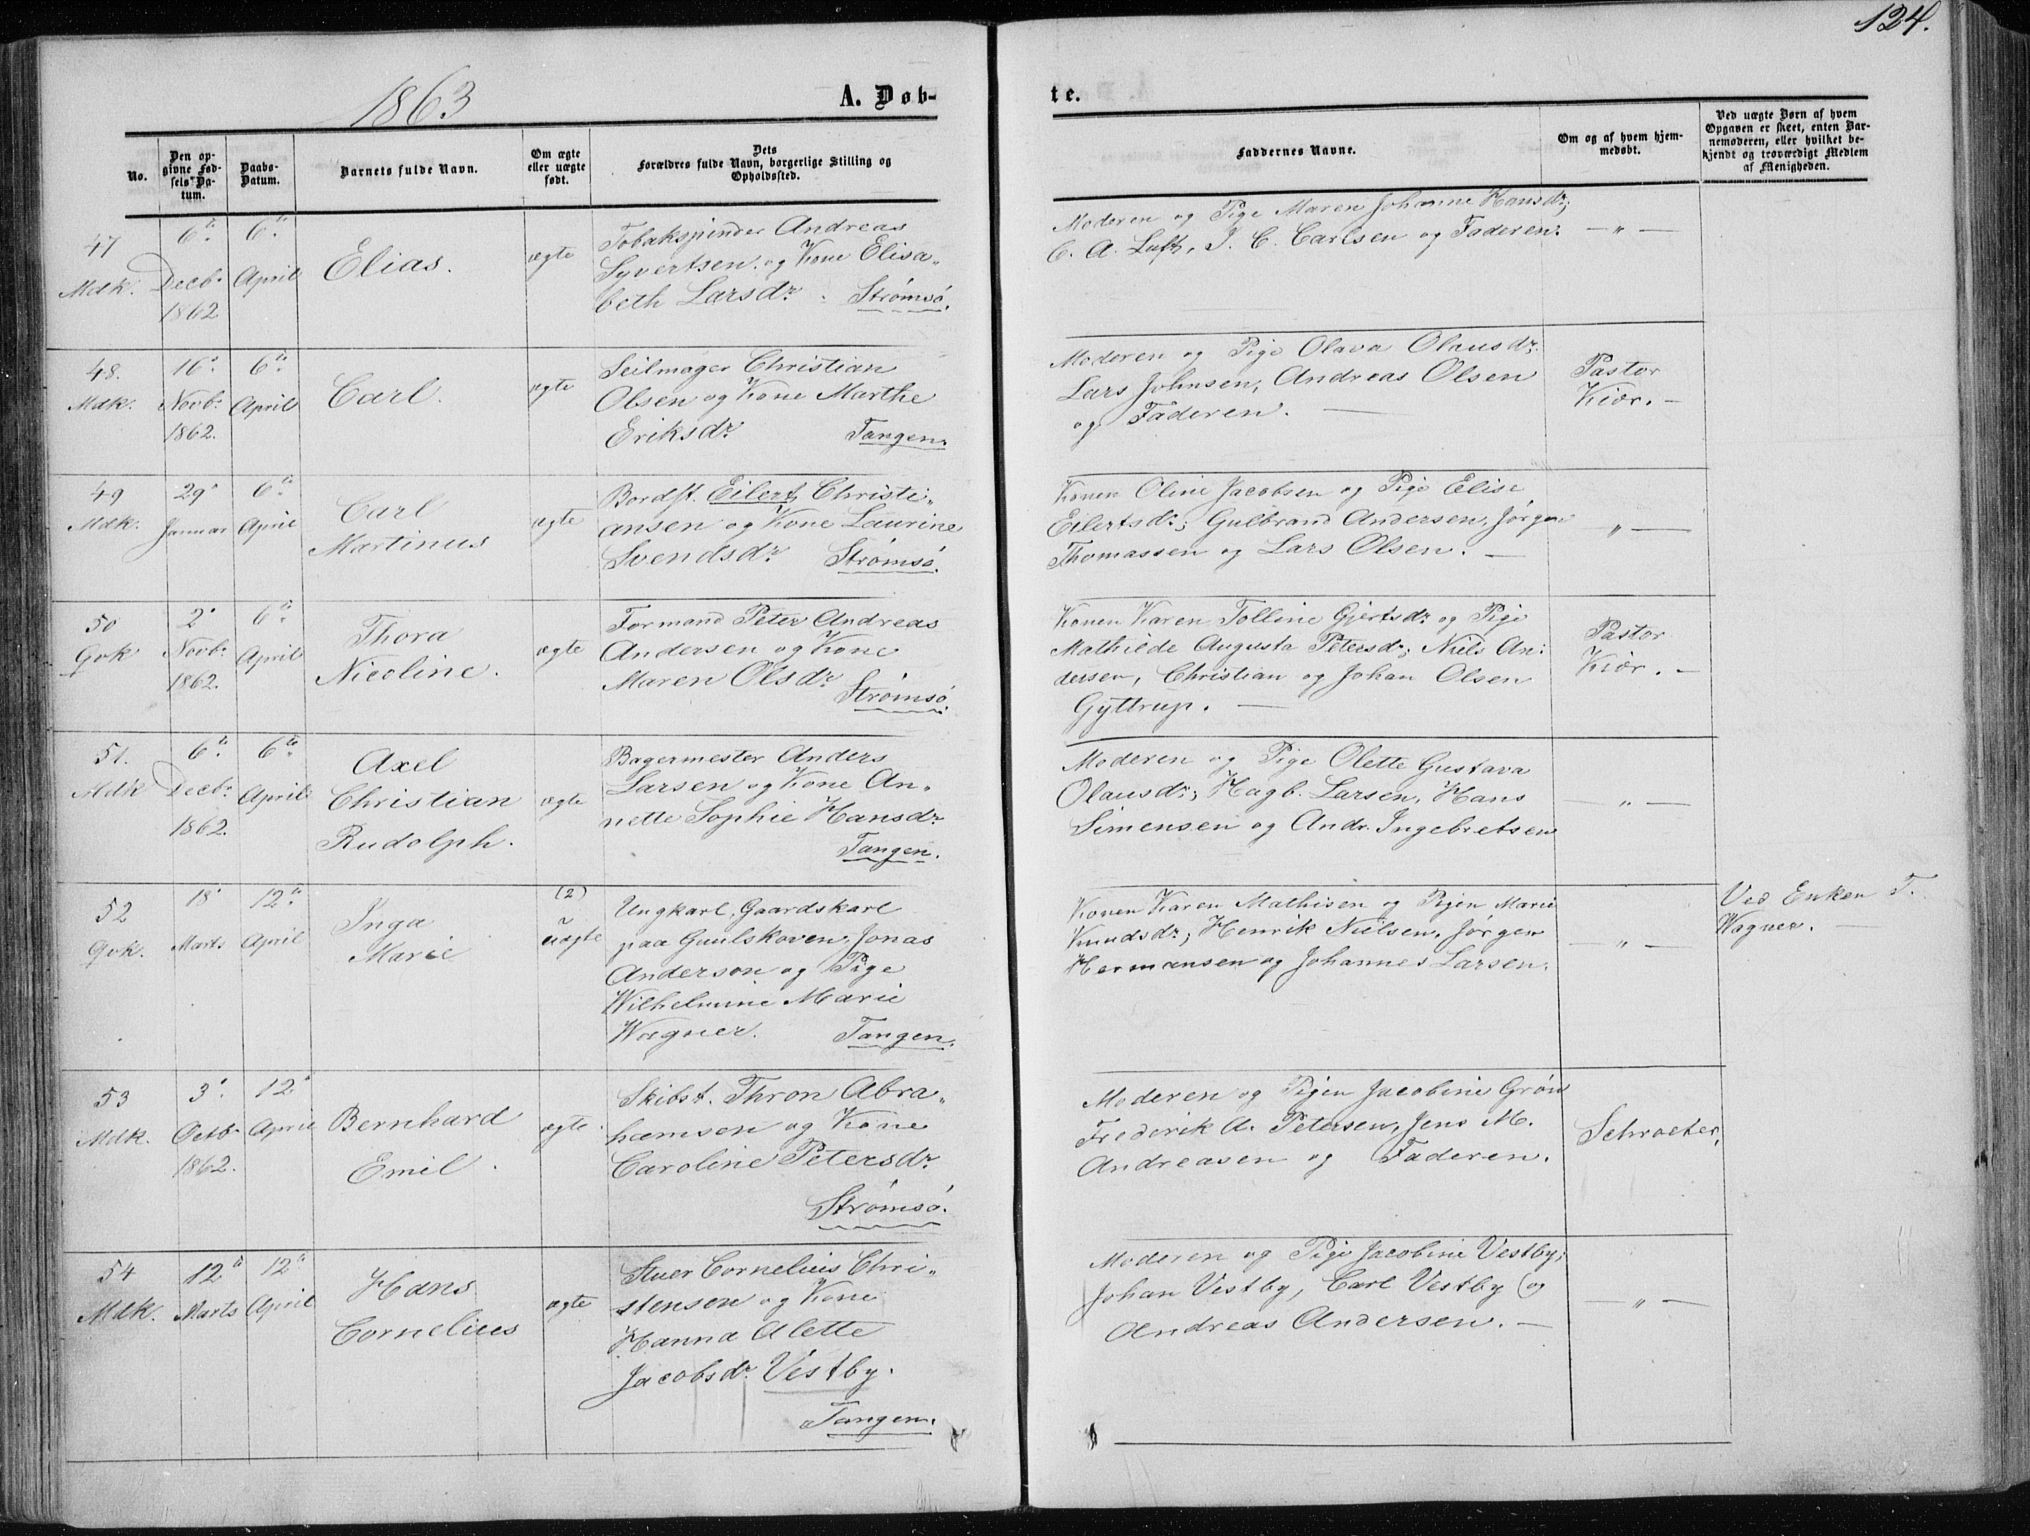 124.
1863
A. Døb-
te.
No.
Den op-
givne Fød-
sels-Da-
tum.
Daabs-
Datum.
Barnets fulde Navn.
Om ægte
eller uægte
født.
Dets
Forældres fulde Navn, borgerlige Stilling og
Opholdssted.
Faddernes Navne.
Om og af hvem hjem-
medøbt.
Ved uægte Børn af hvem
Opgaven er skeet, enten Bar-
nemoderen, eller hvilket be-
kjendt og troværdigt Medlem
af Menigheden.
47
Mdk.
6te
Decbr
1862
6te
April
Elias.
ægte
Tobakspinder Andreas
Syvertsen og Kone Elisa„
beth Larsdr. Strømsø.
Moderen og Pige Maren Johanne Hansdr;
C. A. Luft, I. C. Carlsen og Faderen.
— „ —
48.
Mdk.
16.
Novbr
1862.
6te
April
Carl.
ægte
Seilmager Christian
Olsen og Kone Marthe
Eriksdr Tangen.
Moderen og Pige Olava Olausdr;
Lars Johnsen, Andreas Olsen
og Faderen. —
Pastor
Kiør. —
49
Mdk.
29.
Januar
6te
April
Carl
Martinus
ægte
Bordst. Eilert Christi„
ansen og Kone Laurine
Svendsdr Strømsø.
Konen Oline Jacobsen og Pige Elise
Eilertsdr; Gulbrand Andersen, Jørgen
Thomassen og Lars Olsen. —
— „ —
50
Gvk
2.
Novbr
1862.
6te
April
Thora
Nicoline.
ægte
Formand Peter Andreas
Andersen og Kone
Maren Olsdr
Strømsø.
Konen Karen Tolline Gjertsdr og Pige
Mathilde Augusta Petersdr; Niels An:
dersen, Christian og Johan Olsen
Gyttrup. —
Pastor
Kiør. —
51.
Mdk
6te
Decbr
1862.
6te
April
Axel
Christian
Rudolph.
ægte
Bagermester Anders
Larsen og Kone An„
nette Sophie Hansdr
Tangen.
Moderen og Pige Olette Gustava
Olausdr; Hagb. Larsen, Hans
Simensen og Andr. Ingebretsen
— „ —
52
Gvk.
18.
Marts
12te
April
Inga
Marie
(2)
uægte
Ungkarl, Gaardskarl
paa Guulskoven, Jonas
Anderson og Pige
Wilhelmine Marie
Wagner. Tangen.
Konen Karen Mathisen og Pigen Marie
Knudsdr; Henrik Nielsen, Jørgen
Hermansen og Johannes Larsen.
— „ —
Ved Enken T.
Wagner. —
53
Mdk.
3.
Octbr
1862.
12
April
Bernhard
Emil.
ægte
Skibst. Thron Abra„
hamsen og Kone
Caroline Petersdr
Strømsø.
Moderen og Pigen Jacobine Grøn
Frederik A. Petersen, Jens M.
Andreasen og Faderen.
Schroeter.
54
Mdk.
12te
Marts
12te
April
Hans
Cornelius
ægte
Stuer Cornelius Chri„
stensen og Kone
Hanna Alette
Jacobsdr Vestby.
Tangen.
Moderen og Pige Jacobine Vestby;
Johan Vestby, Carl Vestby og
Andreas Andersen. —
— „ —